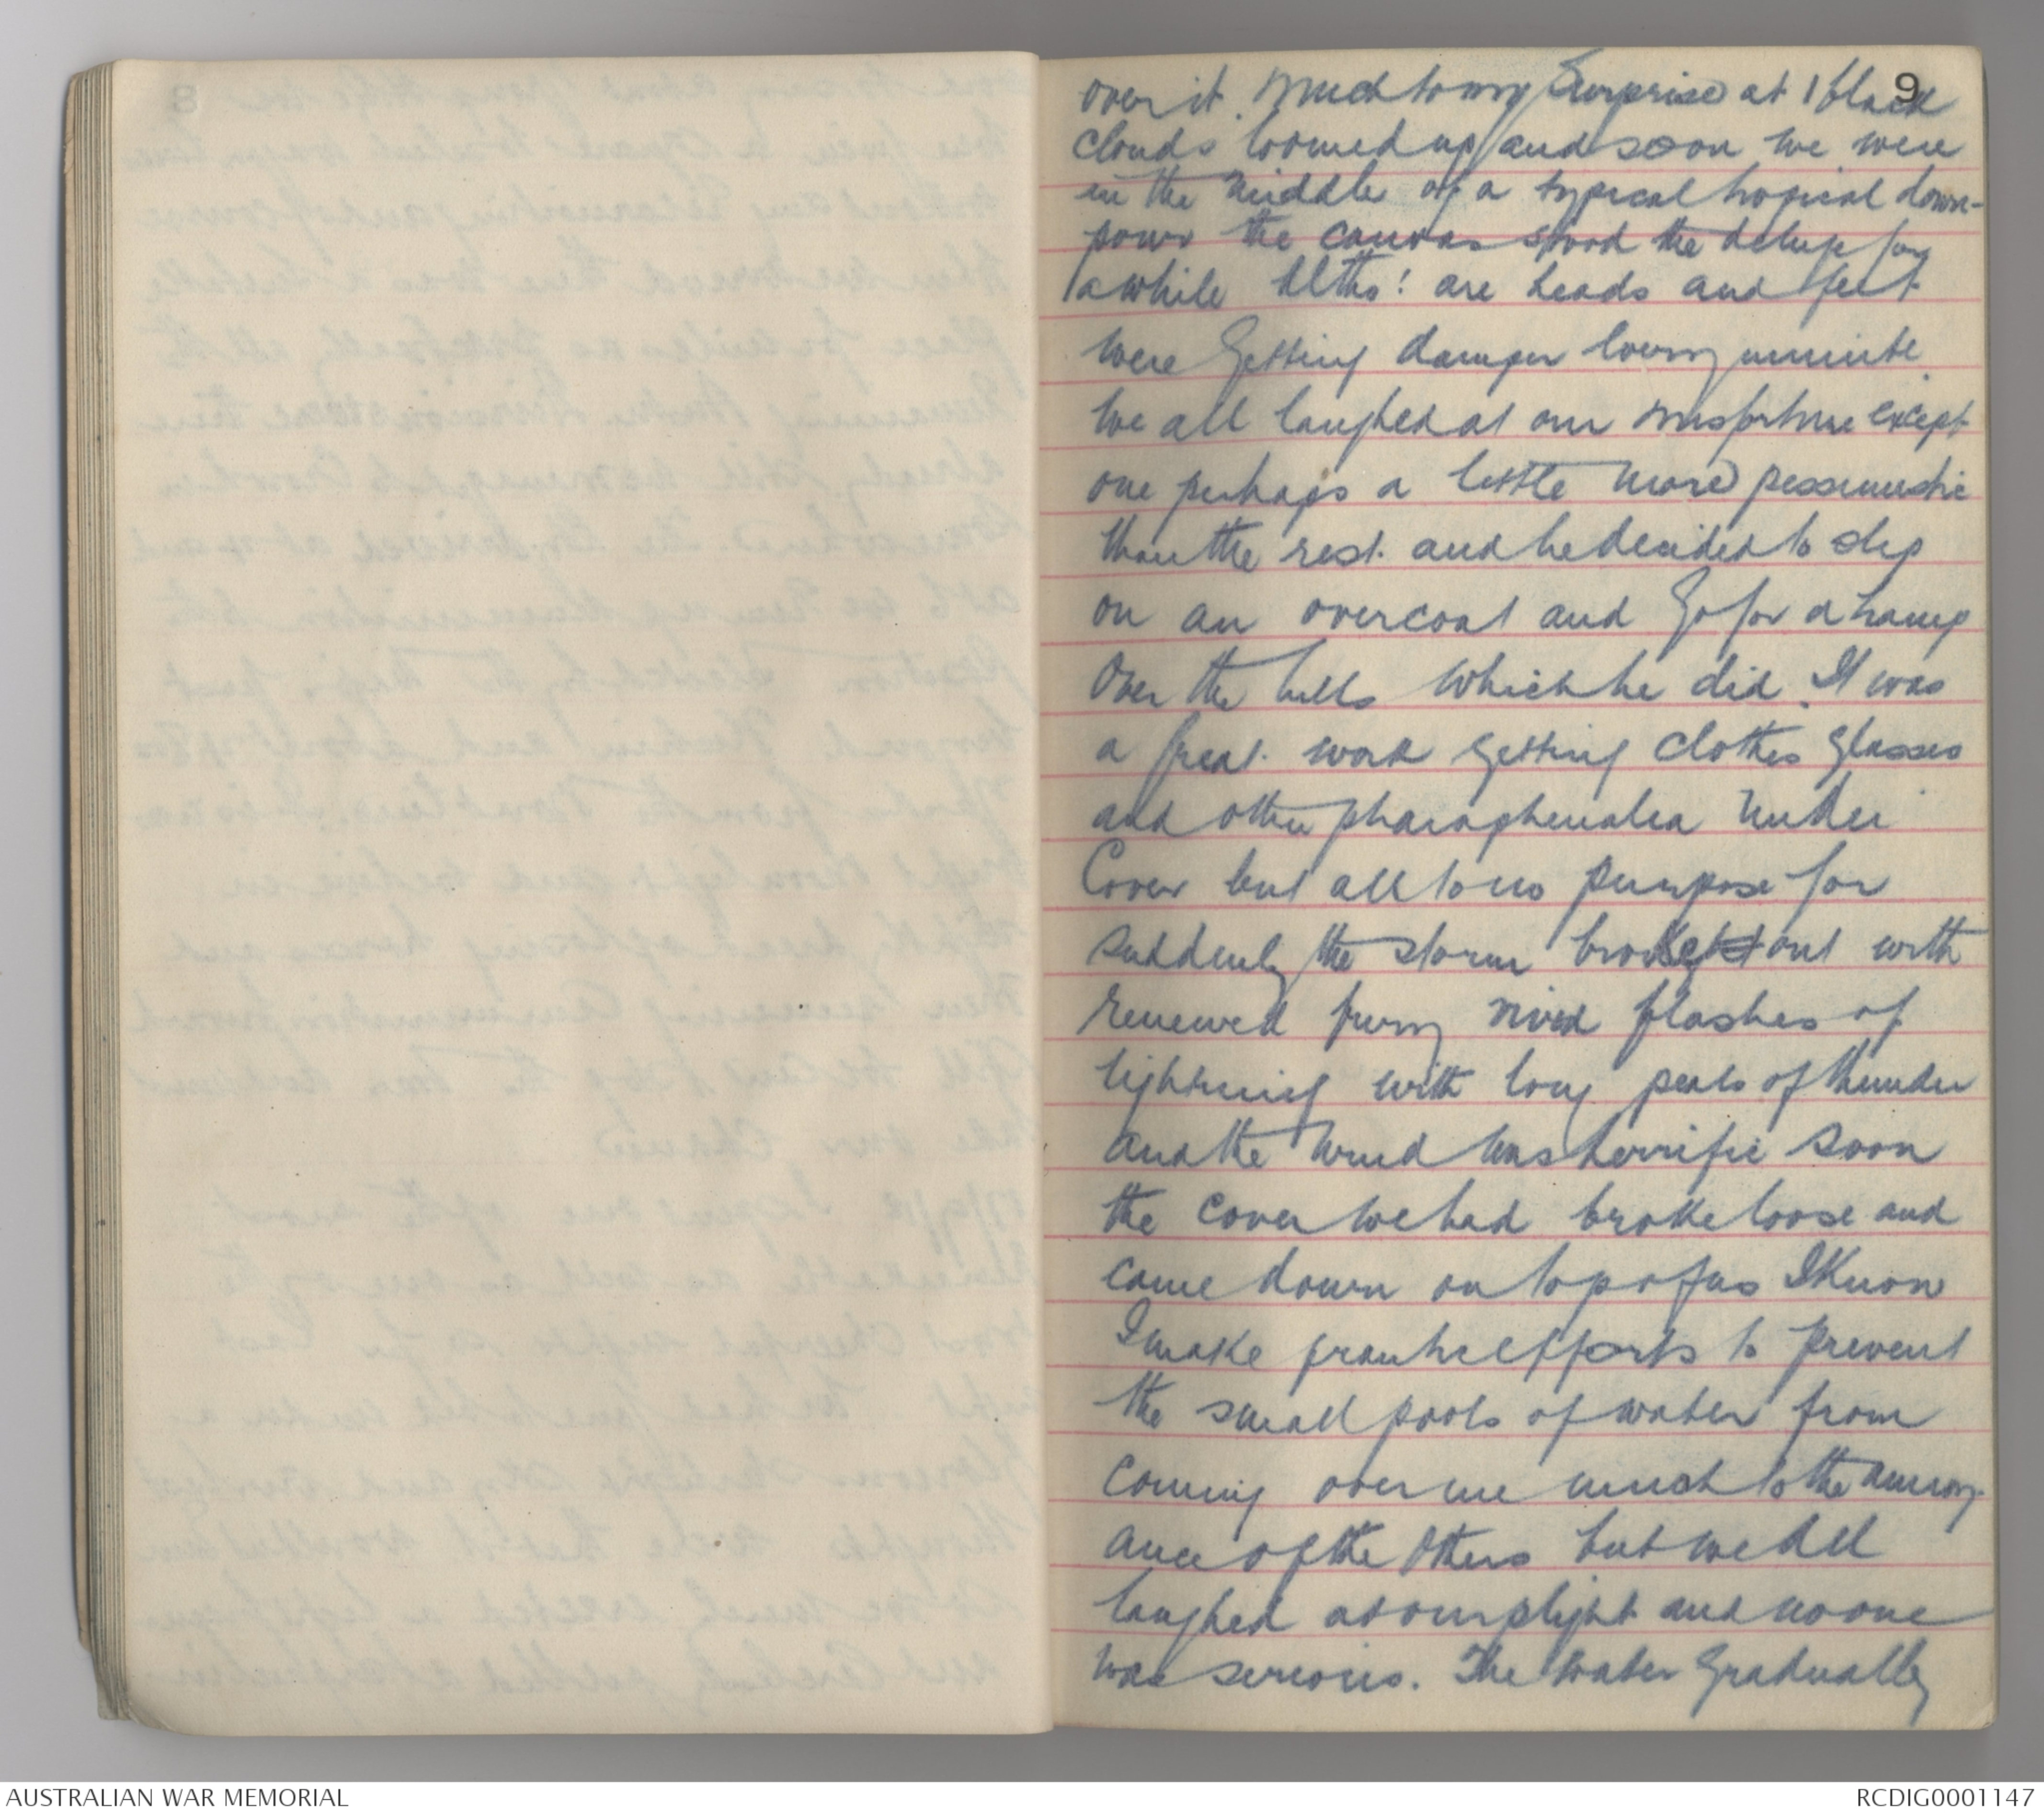 9
over it. Much to my Surprise at 1 black
clouds loomed up and soon we were
in the middle of a typical tropical down-
pour the canvas stood the deluge for
a while Altho! are heads and feet
were getting damper every minute.
We all laughed at our misfortune except
one perhaps a little more pessimistic
than the rest. and he decided to slip
on an overcoat and Go for a tramp
Over the hills which he did. It was
a great work getting clothes glasses
and other pharaphenalea Under
Cover but all to no purpose for
suddenly the storm broke out with
renewed fury vived flashes of
lightning with long peals of thunder
and the wind was terrific soon
the cover we had broke loose and
came down on top of us I Know
I make frantic efforts to prevent
the small pools of water from
coming over me much to the annoy-
ance of the Others but we All
laughed at our plight and no one
was serious. The water Gradually
AUSTRALIAN WAR MEMORIAL
RCDIG0001147